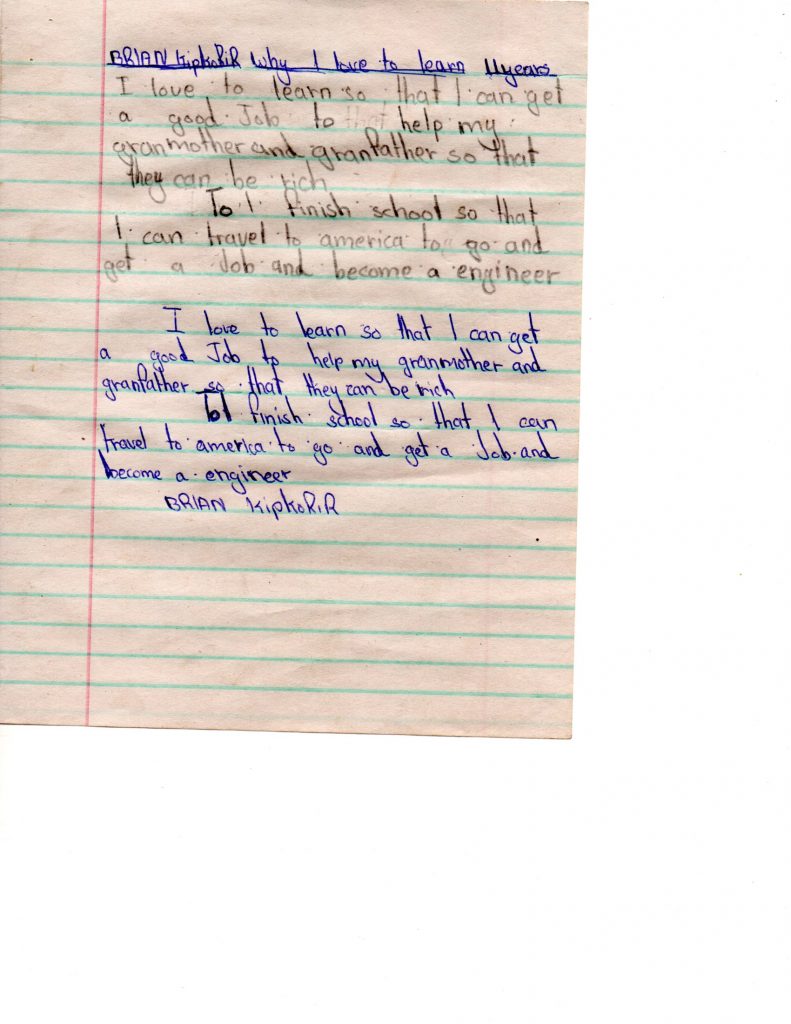 BRIAN KipkoRiR Why I love to learn 11years
I love to learn so that I can get
a good Job to that help my
granmother and granfather so that
they can be rich
To I finish school so that
I can travel to america to go and
get a Job and become a engineer
I love to learn so that I can get
a good Job to help my granmother and
granfather so that they can be rich
To I finish school so that I can
travel to america to go and get a Job and
become a engineer
BRIAN KipkoRiR